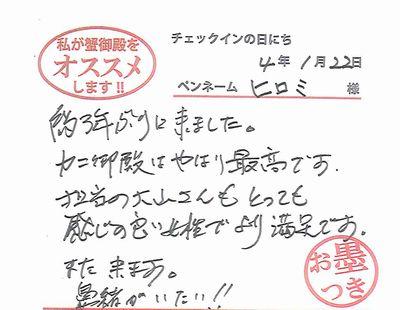 私が蟹御殿を
オススメ
します!!
チェックインの日にち
4年 1月22日
ペンネーム ヒロミ 様
約3年ぶりに来ました。
カニ御殿はやはり最高です.
担当の大山さんもとっても
感じの良い女性でより満足です。
また 来ます。
がいたい!!
お墨
つき